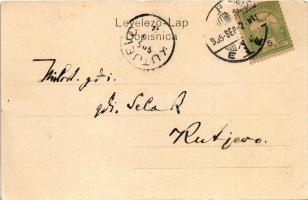 Levelező-Lap
Dopisnica
KUTJEVO
905 SEP
Milost. gdji.
gdji. Sela R
Kutjevo.